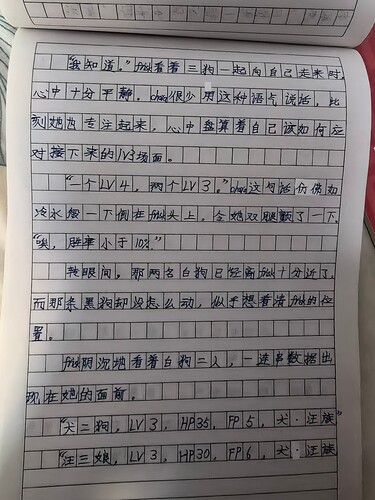 “我知道。”fhk看着三狗一起向自己走来时，
心中十分平静。chara很少用这种语气说话，此
刻她也专注起来，心中盘算着自己该如何应
对接下来的1V3场面。
“一个LV4，两个LV3。”chara这句话仿佛如
冷水般一下倒在fhk头上，令她双腿颤了一下。
“唉，胜率小于10%”
转眼间，那两名白狗已经离fhk十分近了，
而那条黑狗却没怎么动，似乎想看清fhk的位
置。
fhk阴沉地看着白狗二人，一连串数据出
现在她的面前。
“犬二狗，LV3，HP35，FP5，犬·汪族”
“汪三娘，LV3，HP30，FP6，犬·汪族